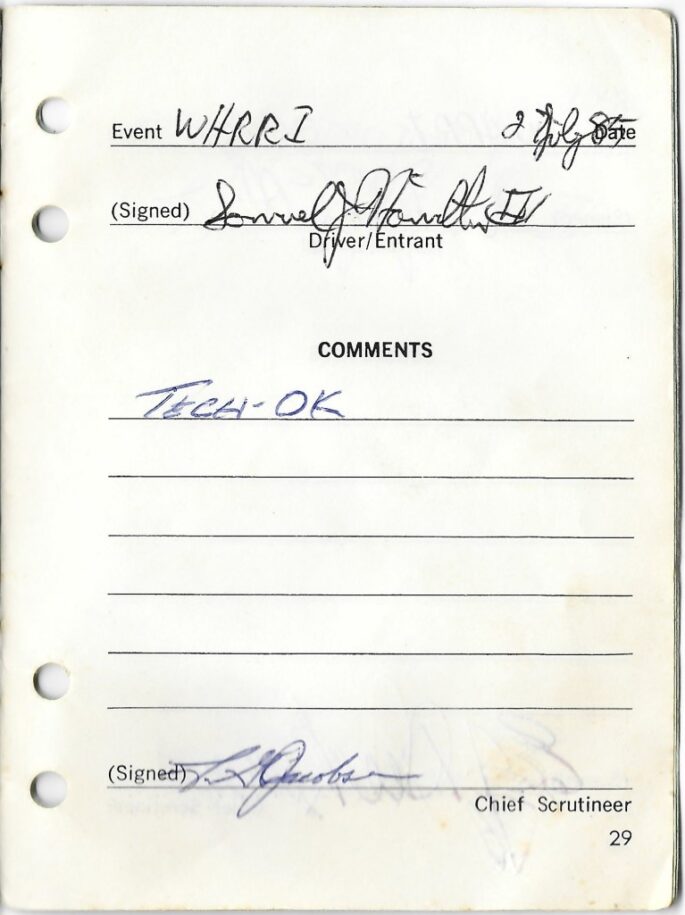 Event WHRRI 2 July 85 Date
(Signed) Samuel J Hamilton IV
Driver/Entrant
COMMENTS
TECH-OK
(Signed) Jacobsen
Chief Scrutineer
29